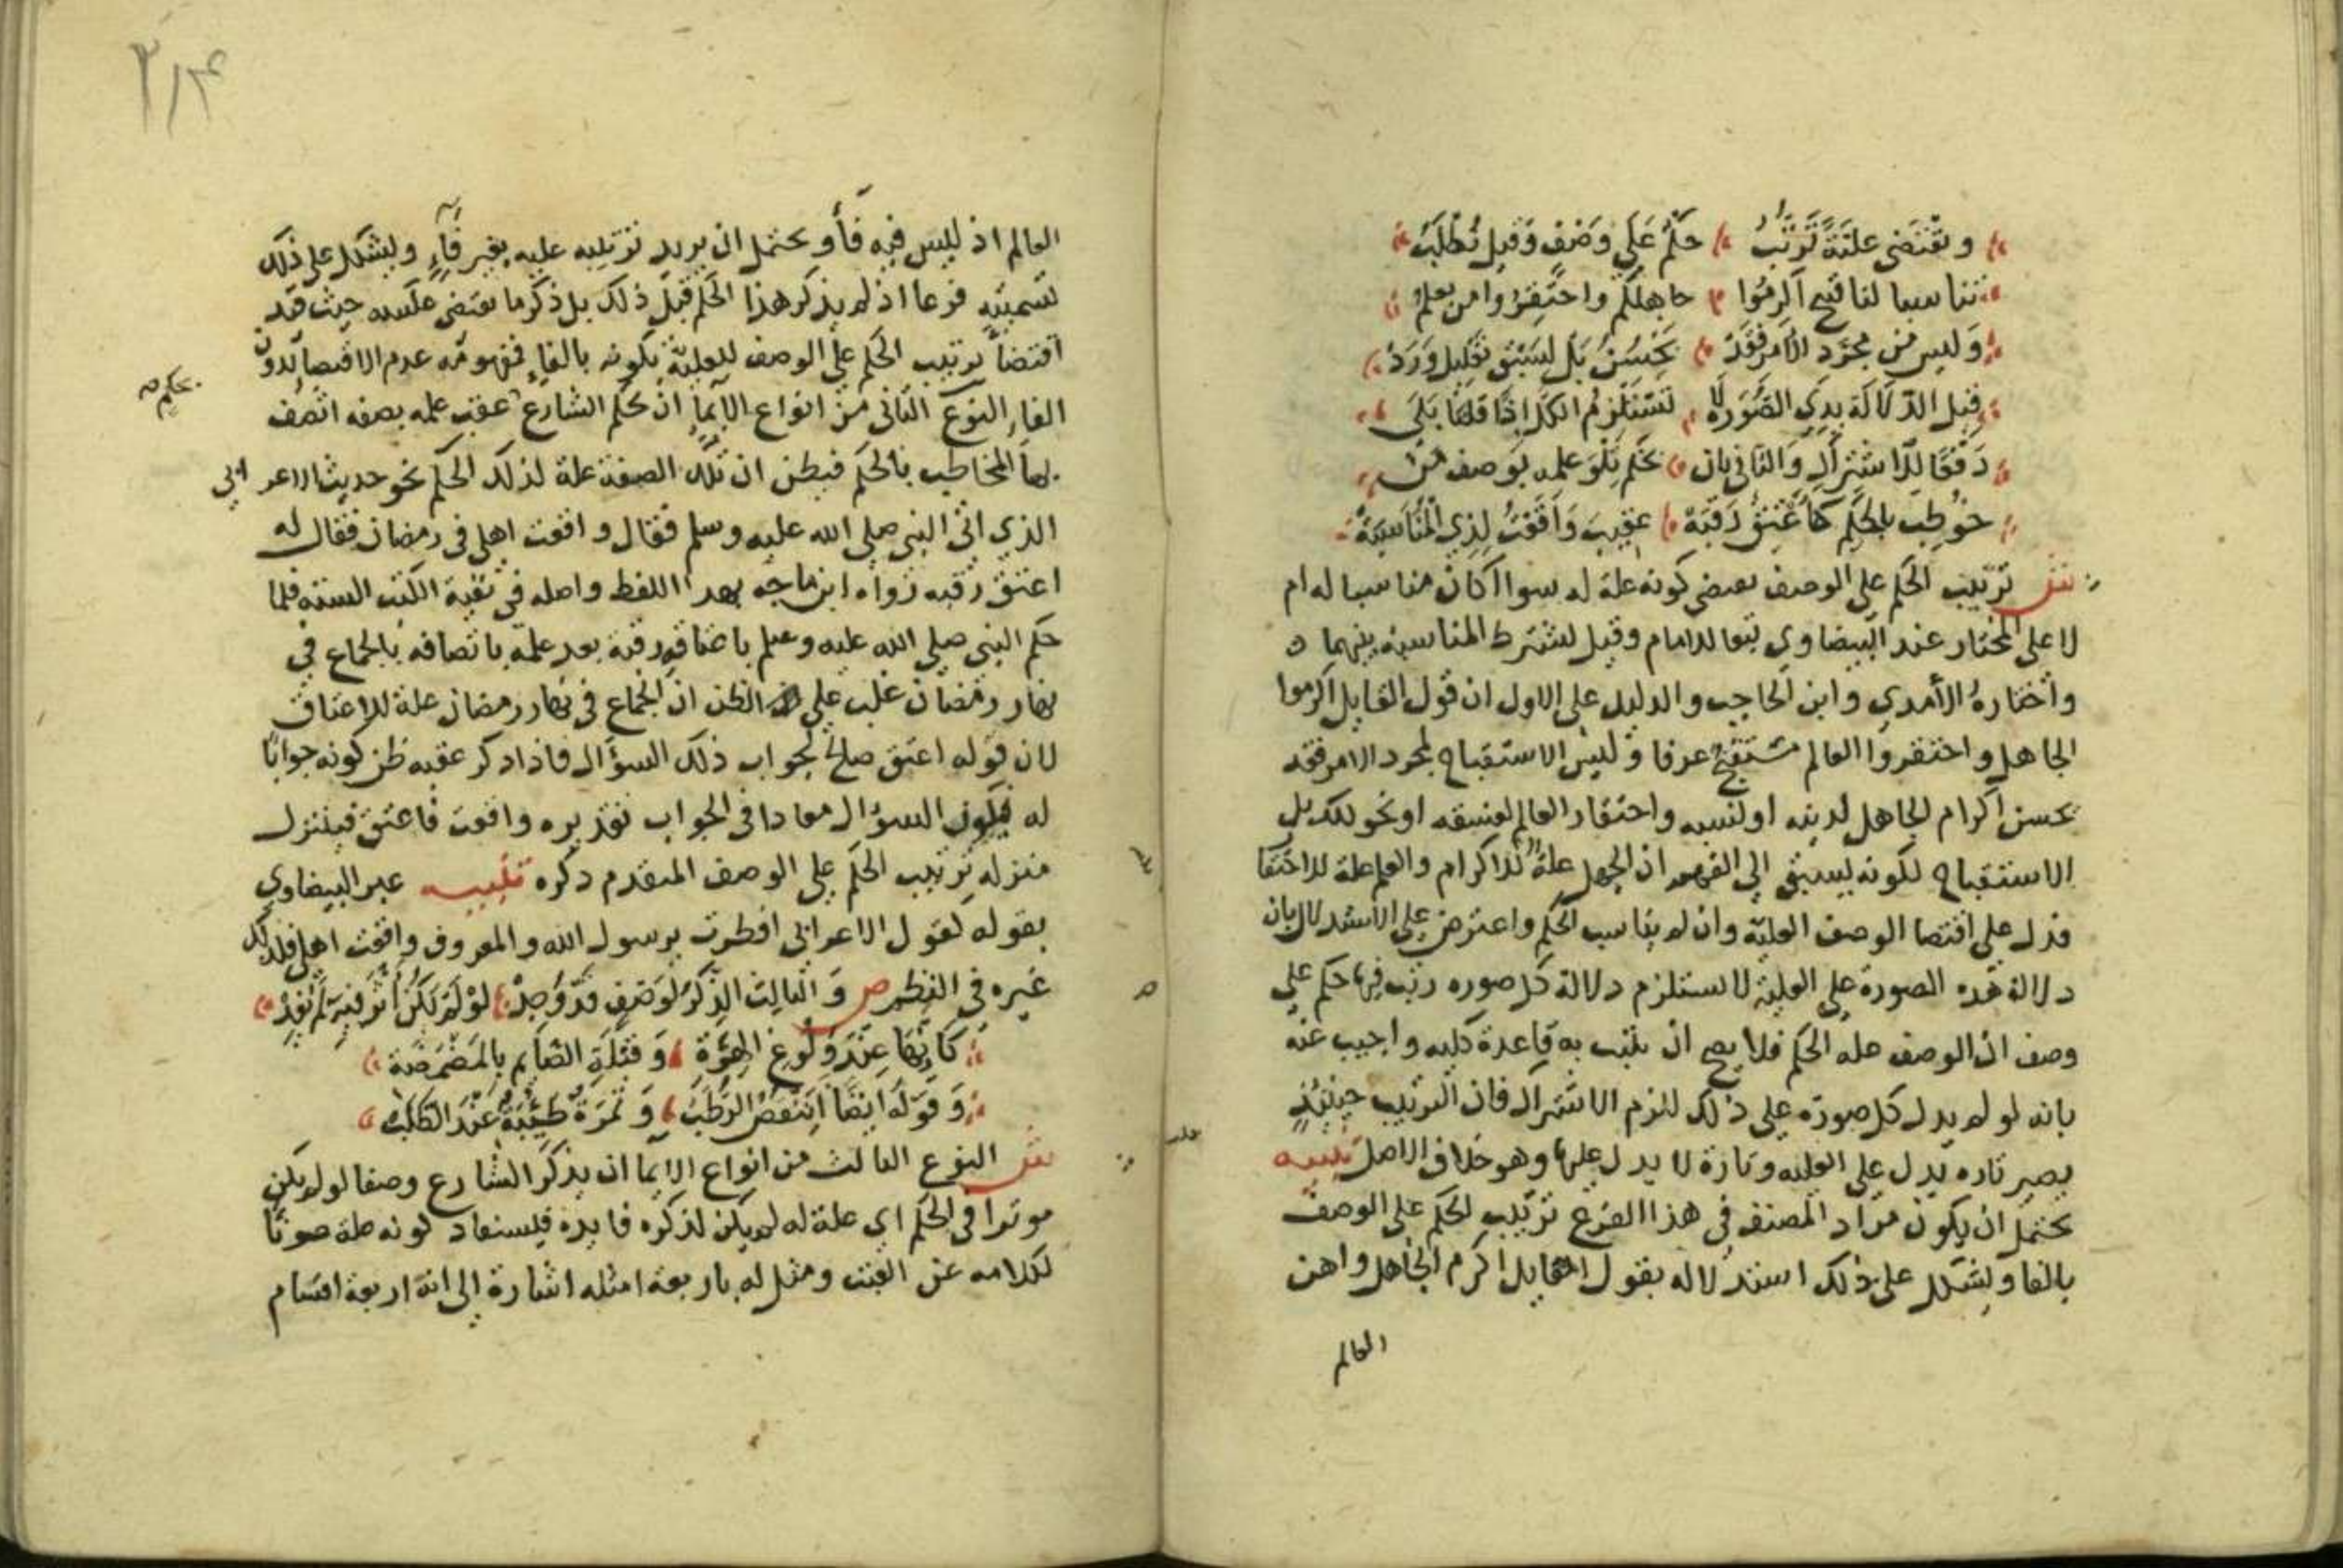 وتقتضي علية ترتب حكم على وصف وقيل تطلب
تناسبا لنا قبح اكرموا جاهلكم واحتقروا من يعلم
وليس من مجرد الامر فقد يحسن بل لسبق تعليل ورد
قيل الدلالة بذي الصورة لا تستلزم الكل اذا قلنا بلى
دفعا للاشتراك والثاني بان يحكم تلو علمه بوصف من
خوطب بالحكم كأعتق رقبة عقيب واقعت لذي المناسبة
ش ترتيب الحكم على الوصف يقتضي كونه علة له سواا كان مناسبا له ام
لا على المختار عند البيضاوي تبعا للامام وقيل تشترط المناسبة بينهما
واختاره الأمدي وابن الحاجب والدليل على الاول ان قول القايل اكرموا
الجاهل واحتقروا العالم مستقبح عرفا وليس الاستقباح لمجرد الامر فقد
يحسن اكرام الجاهل لدينه او لنسبه واحتقار العالم لفسقه او نحو لكك بل
الاستقباح لكونه يسبق الى الفهم ان الجهل علة للاكرام والعلم علة للاحتقا
فدل على اقتضا الوصف العلية وان لم يناسب الحكم واعترض على الاستدلال بان
دلالة هذه الصورة على العلية لا تستلزم دلالة كل صوره رتب فيها حكم على
وصف ان الوصف علة الحكم فلا يصح ان يثبت به قاعدة كليه واجيب عنه
بانه لو لم يدل كل صورة على ذلك للزم الاشتراك فان الترتيب حينئذ
يصير تاره يدل على العليه وتارة لا يدل عليها وهو خلاف الاصل تنبيه
يحتمل ان يكون مراد المصنف في هذا الفرع ترتيب الحكم على الوصف
بالفا ويشكل على ذلك استدلاله بقول القايل اكرم الجاهل واهن
العالم
٢١٤
العالم اذ ليس فيه فأ ويحتمل ان يريد ترتيبه عليه بغير فآء ويشكل على ذلك
تسميته فرعا اذ لم يذكر هذا الحكم قبل ذلك بل ذكر ما يقتضي عكسه حيث قيد
اقتضأ ترتيب الحكم على الوصف للعلية بكونه بالفاء فمفهومه عدم الاقتضا بدون
الفاء النوع الثاني من انواع الايما ان يحكم الشارع عقب علمه بصفه اتصف
بحكم صه
بها المخاطب بالحكم فيظن ان تلك الصفة علة لذلك الحكم نحو حديث الاعرابي
الذي اتى النبي صلى الله عليه وسلم فقال واقعت اهلي في رمضان فقال له
اعتق رقبه رواه ابن ماجه بهذا اللفظ واصله في بقية الكتب الستة فلما
حكم النبي صلى الله عليه وسلم باعتاق رقبة بعد علمه باتصافه بالجماع في
نهار رمضان غلب على الظن ان الجماع في نهار رمضان علة للاعتاق
لان قوله اعتق صالح لجواب ذلك السؤال فاذا ذكر عقبه ظن كونه جوابا
له فيكون السؤال معادا في الجواب تقديره واقعت فاعتق فيتنزل
منزله ترتيب الحكم على الوصف المتقدم ذكره تنبيه عبر البيضاوي
بقوله كقول الاعرابي افطرت يرسول الله والمعروف واقعت اهلي فلذلك
غيره في النظم ص والثالث الذكر لوصف قد وجد لو لم يكن اثر فيه لم يفد
كانها عند ولوغ الهرة وقبلة الصايم بالمضمضة
وقوله ايضا اينقص الرطب وتمرة طيبة عند الطلب
ش النوع الثالث من انواع الايما ان يذكر الشارع وصفا لو لم يكن
موثرا في الحكم اي علة له لم يكن لذكره فايده فيستفاد كونه علة صونا
لكلامه عن العبث ومثل له باربعة امثله اشارة الى انه اربعة اقسام